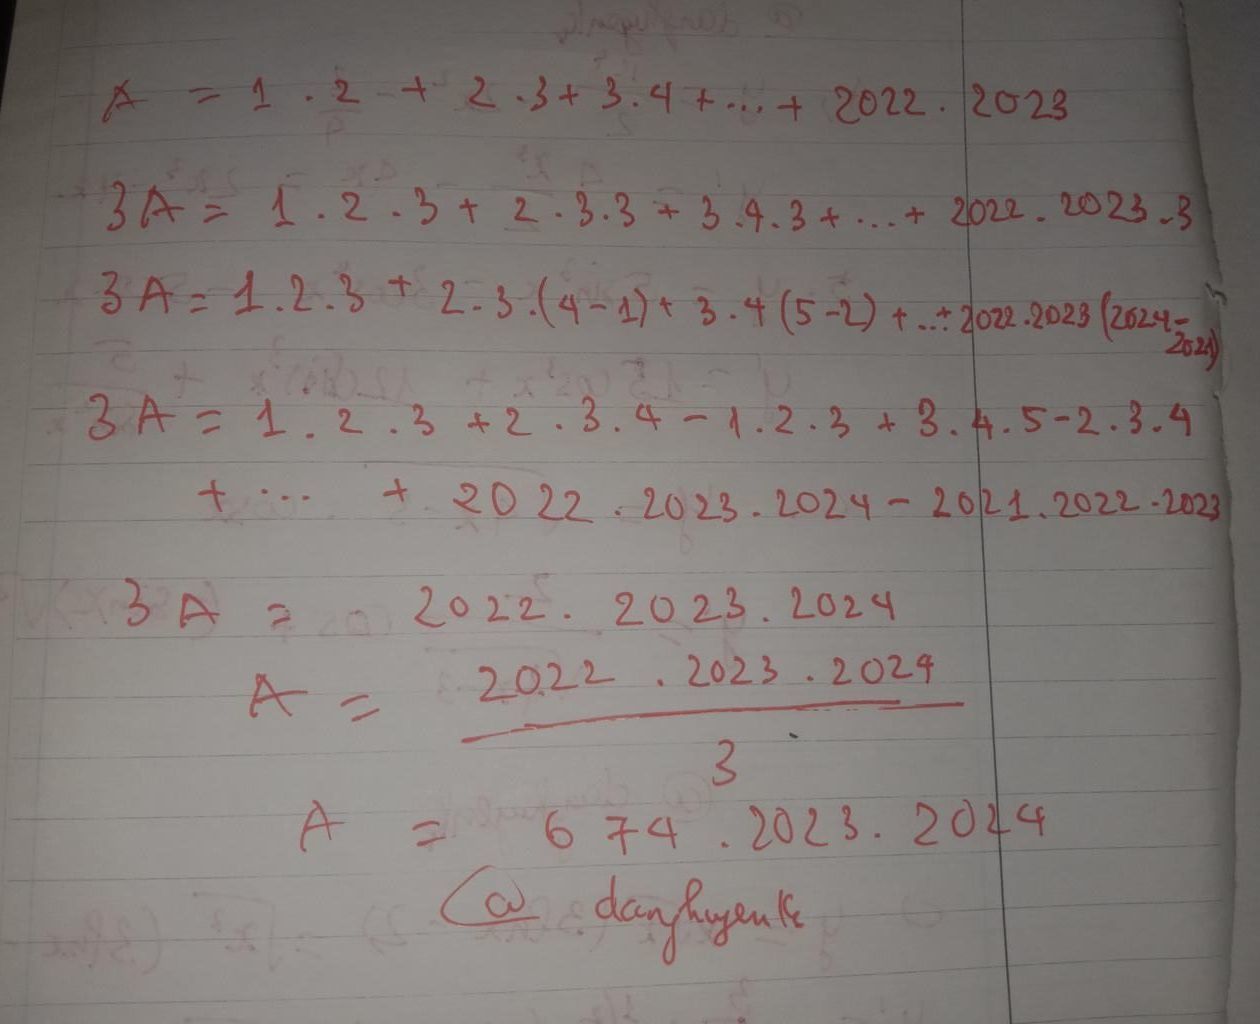 A = 1 . 2 + 2 . 3 + 3 . 4 + ... + 2022 . 2023
3A = 1 . 2 . 3 + 2 . 3 . 3 + 3 . 4 . 3 + ... + 2022 . 2023 . 3
3A = 1 . 2 . 3 + 2 . 3 . (4 - 1) + 3 . 4 (5 - 2) + ... + 2022 . 2023 (2024 -
2021)
3A = 1 . 2 . 3 + 2 . 3 . 4 - 1 . 2 . 3 + 3 . 4 . 5 - 2 . 3 . 4
+ ... + 2022 . 2023 . 2024 - 2021 . 2022 . 2023
3A = 2022 . 2023 . 2024
A = 2022 . 2023 . 2024
3
A = 674 . 2023 . 2024
@ danghuyenk